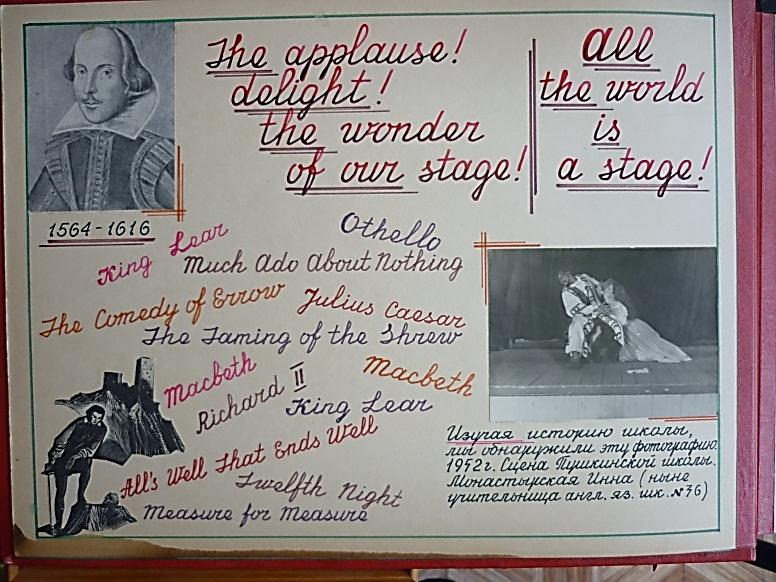 The applause!
delight!
the wonder
of our stage!
all
the world
is
a stage!
1564-1616
King Lear
Othello
Much Ado About Nothing
The Comedy of Errow
Julius Caesar
The Taming of the Shrew
Macbeth
Richard II
Macbeth
King Lear
All's Well That Ends Well
Twelfth Night
Measure for Measure
Изучая историю школы,
мы обнаружили эту фотографию.
1952г. Сцена Пушкинской школы.
Монастыская Инна (ныне
учительница англ. яз. шк. №36)